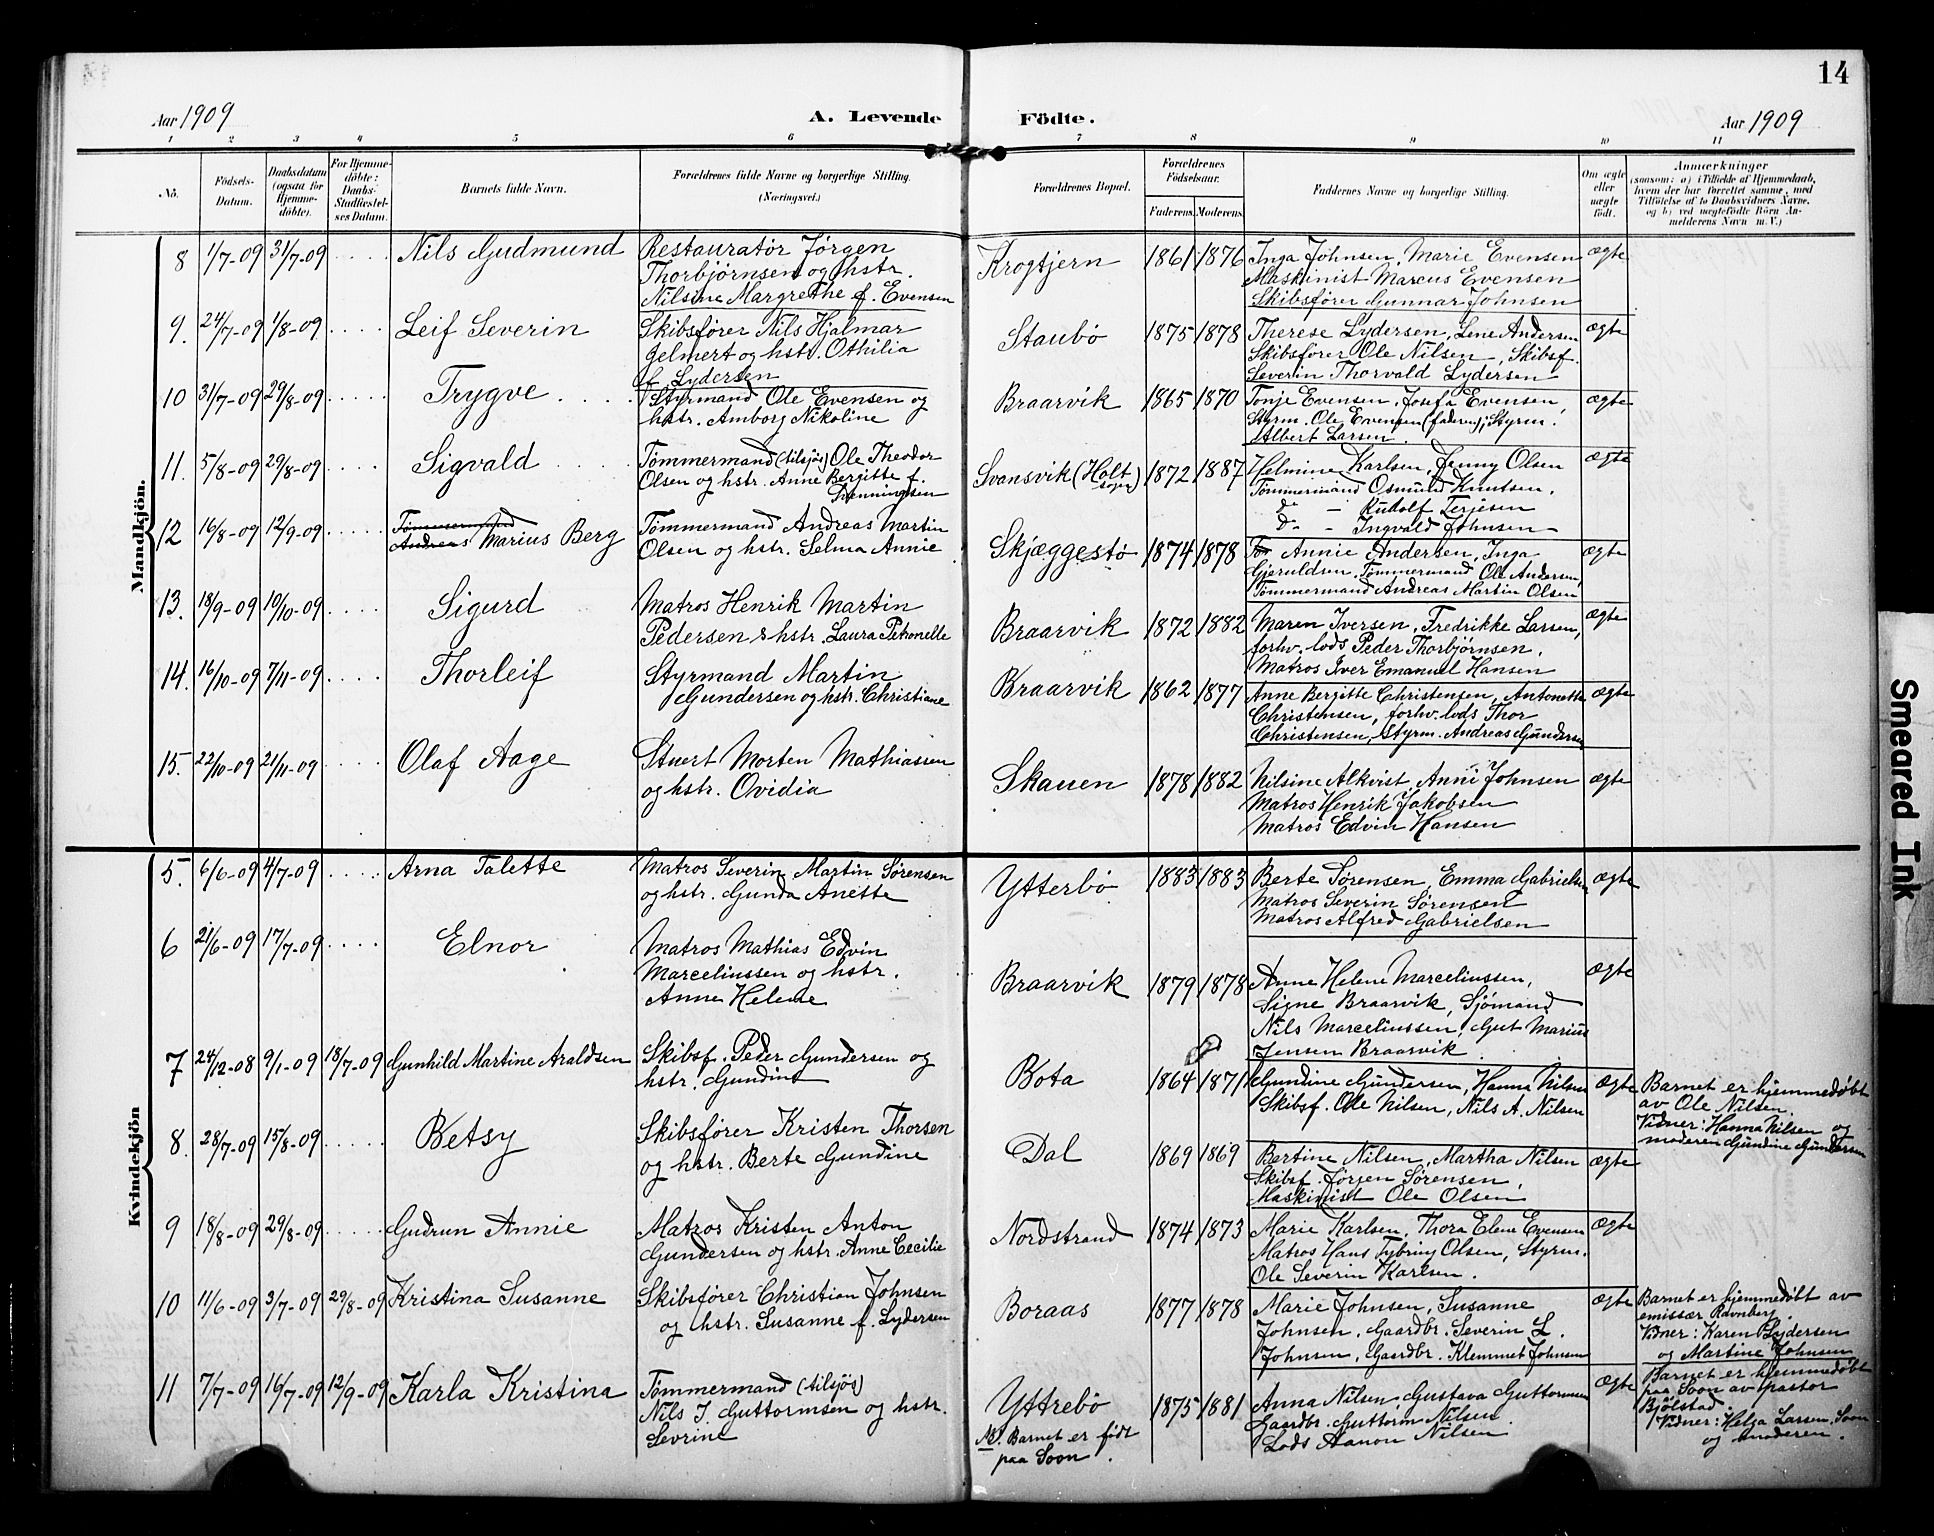 14
Aar 1909
A. Levende
Födte.
Aar 1909
1 2 3 4 5 6 7 8 9 10 11
No.
Födsels-
Datum.
Daabsdatum
(ogsaa for
Hjemme-
döbte).
For Hjemme-
döbte:
Daabs-
Stadfæstel-
ses Datum.
Barnets fulde Navn.
Forældrenes fulde Navne og borgerlige Stilling.
(Næringsvei.)
Forældrenes Bopæl.
Forældrenes
Födselsaar.
Faderens. Moderens.
Faddernes Navne og borgerlige Stilling.
Om ægte
eller
uægte
födt.
Anmærkninger
(saasom: a) i Tilfælde af Hjemmedaab,
hvem der har forrettet samme, med
Tilföielse af to Daabsvidners Navne,
og b) ved uægtefödte Börn An-
melderens Navn m. V.)
Mandkjön.
8 1/7-09 31/7-09 Nils Gudmund
Restauratør Jørgen
Thorbjørnsen og hstr.
Nilsine Margrethe f. Evensen
Krogtjern 1861 1876
Inga Johnsen, Marie Evensen
Maskinist Marcus Evensen
Skibsfører Gunnar Johnsen
ægte
9. 24/7-09 1/8-09 Leif Severin
Skibsfører Nils Hjalmar
Gelmert og hstr. Othilia
f. Lydersen
Staubø 1875 1878
Therese Lydersen, Lene Andersen
Skibsfører Ole Nilsen, Skibsf.
Severin Thorvald Lydersen
ægte
10 31/7-09 29/8-09 Trygve
Styrmand Ole Evensen og
hstr. Amborg Nikoline
Braarvik 1865 1870
Tonje Evensen, Josefa Evensen,
Styrm. Ole Evensen (faderen), Styrm.
Albert Larsen.
ægte
11. 5/8-09 29/8-09 Sigvald
Tømmermand (tilsjøs) Ole Theodor
Olsen og hstr. Anne Bergitte f.
Svansvik (Holt
sogn) 1872 1887
Helmine Karlsen, Jenny Olsen
Tømmermand Osmund Knutsen,
do - Rudolf Terjesen
do - Ingvald Johnsen
ægte
12 16/8-09 12/9-09 Tømmermand
Andreas Marius Berg
Tømmermand Andreas Martin
Olsen og hstr. Selma Annie
Skjæggestø 1874 1878
Annie Andersen, Inga
Gjeruldsen, Tømmermand Ole Andersen,
Tømmermand Andreas Martin Olsen
ægte
13. 18/9-09 10/10-09 Sigurd
Matros Henrik Martin
Pedersen & hstr. Laura Petronelle
Braarvik 1872 1882
Maren Iversen, Fredrikke Larsen,
forhv. lods Peder Thorbjørnsen,
Matros Iver Emanuel Hansen
ægte
14. 16/10-09 7/11-09 Thorleif
Styrmand Martin
Gundersen og hstr. Christiane
Braarvik 1862 1877
Anne Bergitte Christensen, Antonette
Christensen, forhv. lods Thor
Christensen, Styrm. Andreas Gundersen
ægte
15. 22/10-09 21/11-09 Olaf Aage
Stuert Morten Mathiassen
og hstr. Ovidia
Skauen 1878 1882
Nilsine Alkvist, Anni Johnsen
Matros Henrik Jakobsen
Matros Edvin Hansen
ægte
Kvindekjön
5. 6/6-09 4/7-09 Arna Talette
Matros Severin Martin Sørensen
og hstr. Gunda Anette
Ytterbø 1883 1883
Berte Sørensen, Emma Gabrielsen
Matros Severin Sørensen
Matros Alfred Gabrielsen
ægte
6 21/6-09 17/7-09 Elnor
Matros Mathias Edvin
Marceliussen og hstr.
Anne Helene
Braarvik 1879 1878
Anne Helene Marceliussen,
Signe Braarvik, Sjømand
Nils Marceliussen, Gut Marius
Jensen Braarvik
ægte
7 24/12-08 9/1-09 18/7-09 Gunhild Martine Araldsen
Skibsf. Peder Gundersen og
hstr. Gundine
Bota 1864 1871
Gundine Gundersen, Hanna Nilsen
Skibsf. Ole Nilsen, Nils A. Nilsen
ægte
Barnet er hjemmedøbt
av Ole Nilsen.
Vidner: Hanna Nilsen og
moderen Gundine Gundersen
8. 28/7-09 15/8-09 Betsy
Skibsfører Kristen Thorsen
og hstr. Berte Gundine
Dal 1869 1869
Bertine Nilsen, Martha Nilsen
Skibsf. Jørgen Sørensen,
Maskinist Ole Olsen
ægte
9 18/8-09 29/8-09 Gudrun Annie
Matros Kristen Anton
Gundersen og hstr. Anne Cecilie
Nordstrand 1874 1873
Marie Karlsen, Thora Elene Evensen
Matros Hans Tybring Olsen, Styrm.
Ole Severin Karlsen.
ægte
10 11/6-09 3/7-09 29/8-09 Kristina Susanne
Skibsfører Christian Johnsen
og hstr. Susanne f. Lydersen
Boraas 1877 1878
Marie Johnsen, Susanne
Johnsen, Gaardbr. Severin L.
Johnsen, Gaardbr. Klemmet Johnsen
ægte
Barnet er hjemmedøbt av
emissær Ravnberg.
Vidner: Karen Lydersen
og Martine Johnsen
11 7/7-09 16/7-09 12/9-09 Karla Kristina
Tømmermand (tilsjøs)
Nils J. Guttormsen og hstr.
Sevrine
Yttrebø 1875 1881
NB. Barnet er født
paa Soon.
Anna Nilsen, Gustava Guttormsen
Gaardbr. Guttorm Nilsen
Lods Aanon Nilsen
ægte
Barnet er hjemmedøbt
paa Soon av pastor
Bjølstad.
Vidner: Helga Larsen, Soon
og moderen.
Smeared Ink